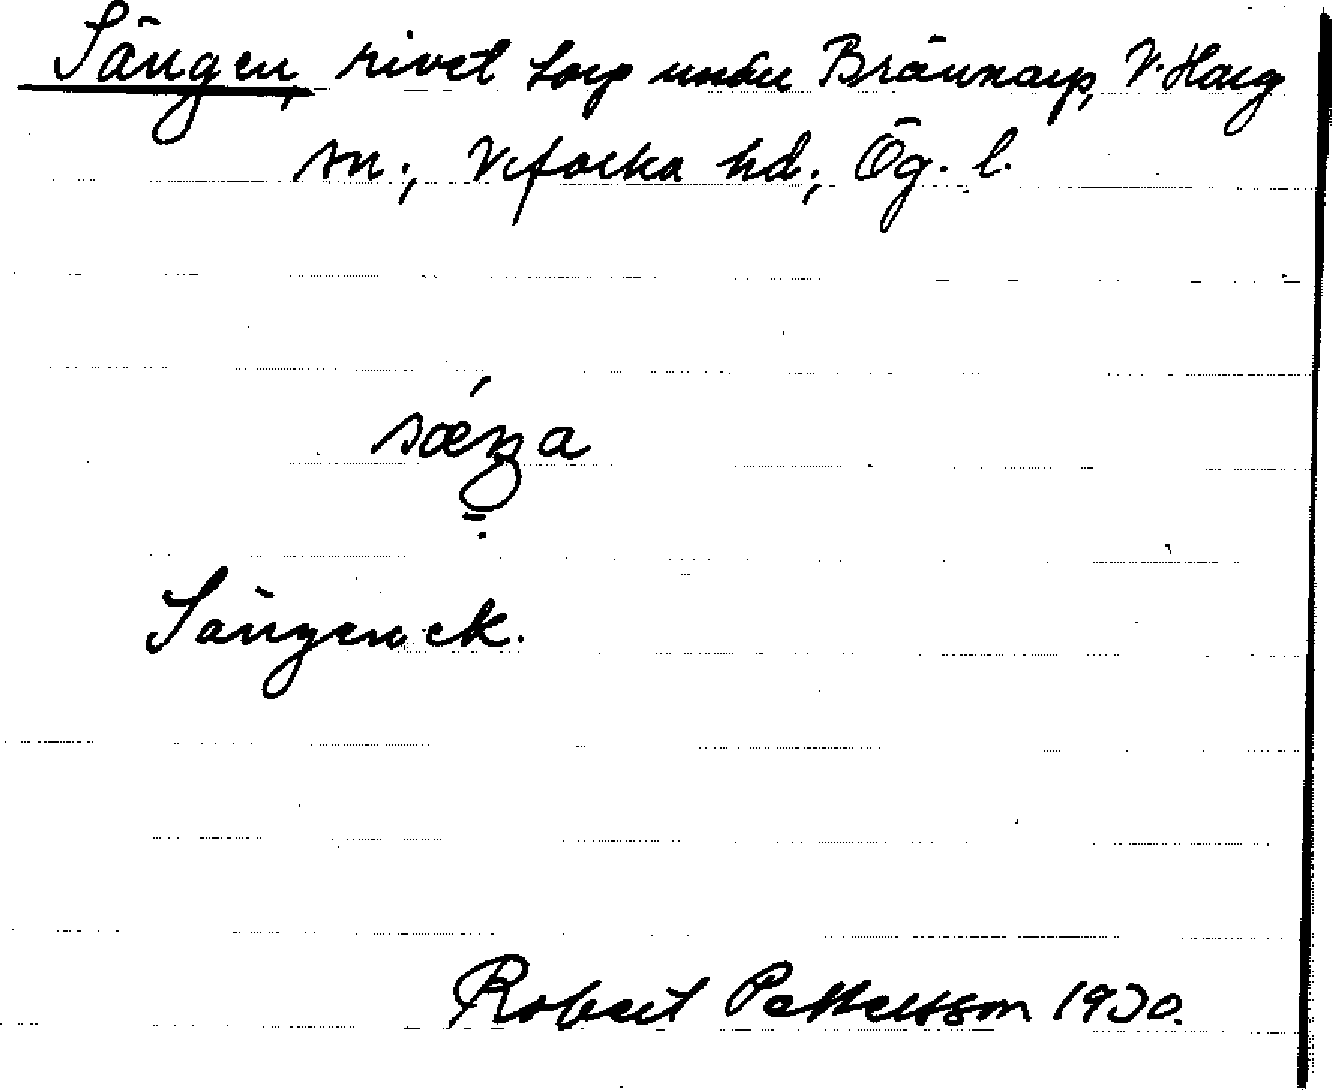 Sängen, rivet torp under Brännarp, V. Harg
sn., Vifolka hd., Ög. l.
sæŋa
Sängen ek.
Robert Pettersson 1930.